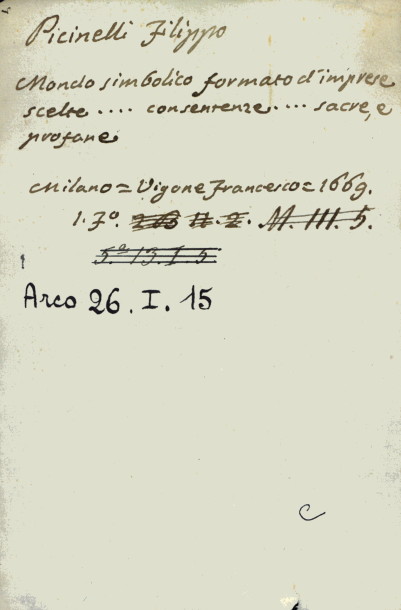 Picinelli Filippo
Mondo simbolico formato d'imprese
scelte .... consentenze .... sacre, e
profane
Milano = Vigone Francesco = 1669.
1. Fo. M. III. 5.
5.a 13. I. 5
Arco 26. I. 15
C